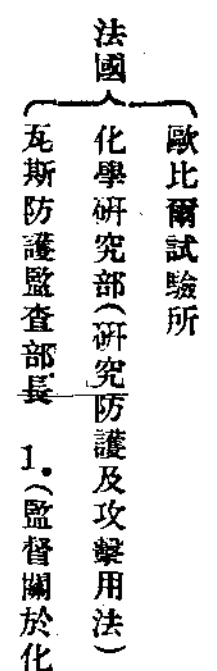 法國
歐比爾試驗所
化學研究部（研究防護及攻擊用法）
瓦斯防護監查部長　1.（監督關於化